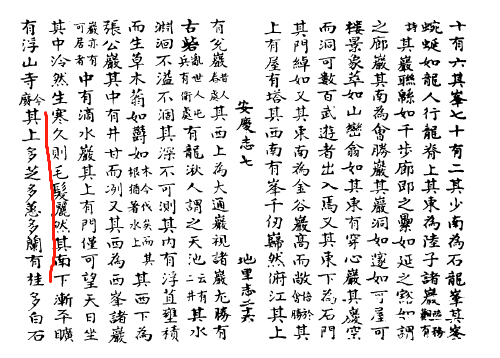 十有六其峯七十有二其少南為石龍峯其寒
蜿蜒如龍人行龍脊上其東為陸子諸巖觀勝務有
詩其巖聯緜如千步廊郎之纍如延之然如謂
之廊巖其南為會勝巖其巖洞如邃如可屋可
樓景象萃如山巒翁如其東有穿心巖其慶窔
而洞可數百武遊者出入焉又其東下為石門
其門綽如又其東南為金谷巖高而敞會於勝其
上有屋有塔其西南有峯千仞巋然俯江其上
安慶志七
地里志三 六
有兜巖昔人春處其西上為大通巖視諸巖尤勝有
古砦亂世人屯兵有衛處也有龍湫人謂之天池云有二井其水
淵洄不溢不涸其深不可測其內有浮苴壅積
而生草木蓊如爵如木今代矣而其根猶著水上其西下為
張公巖其中有井甘而冽又其西為西峯諸巖
巖亦有可居者中有滴水巖其上有門僅可望天日坐
其中泠然生寒久則毛髮麗然其南下漸平曠
有浮山寺今廢其上多芝多蕙多蘭有桂多白石